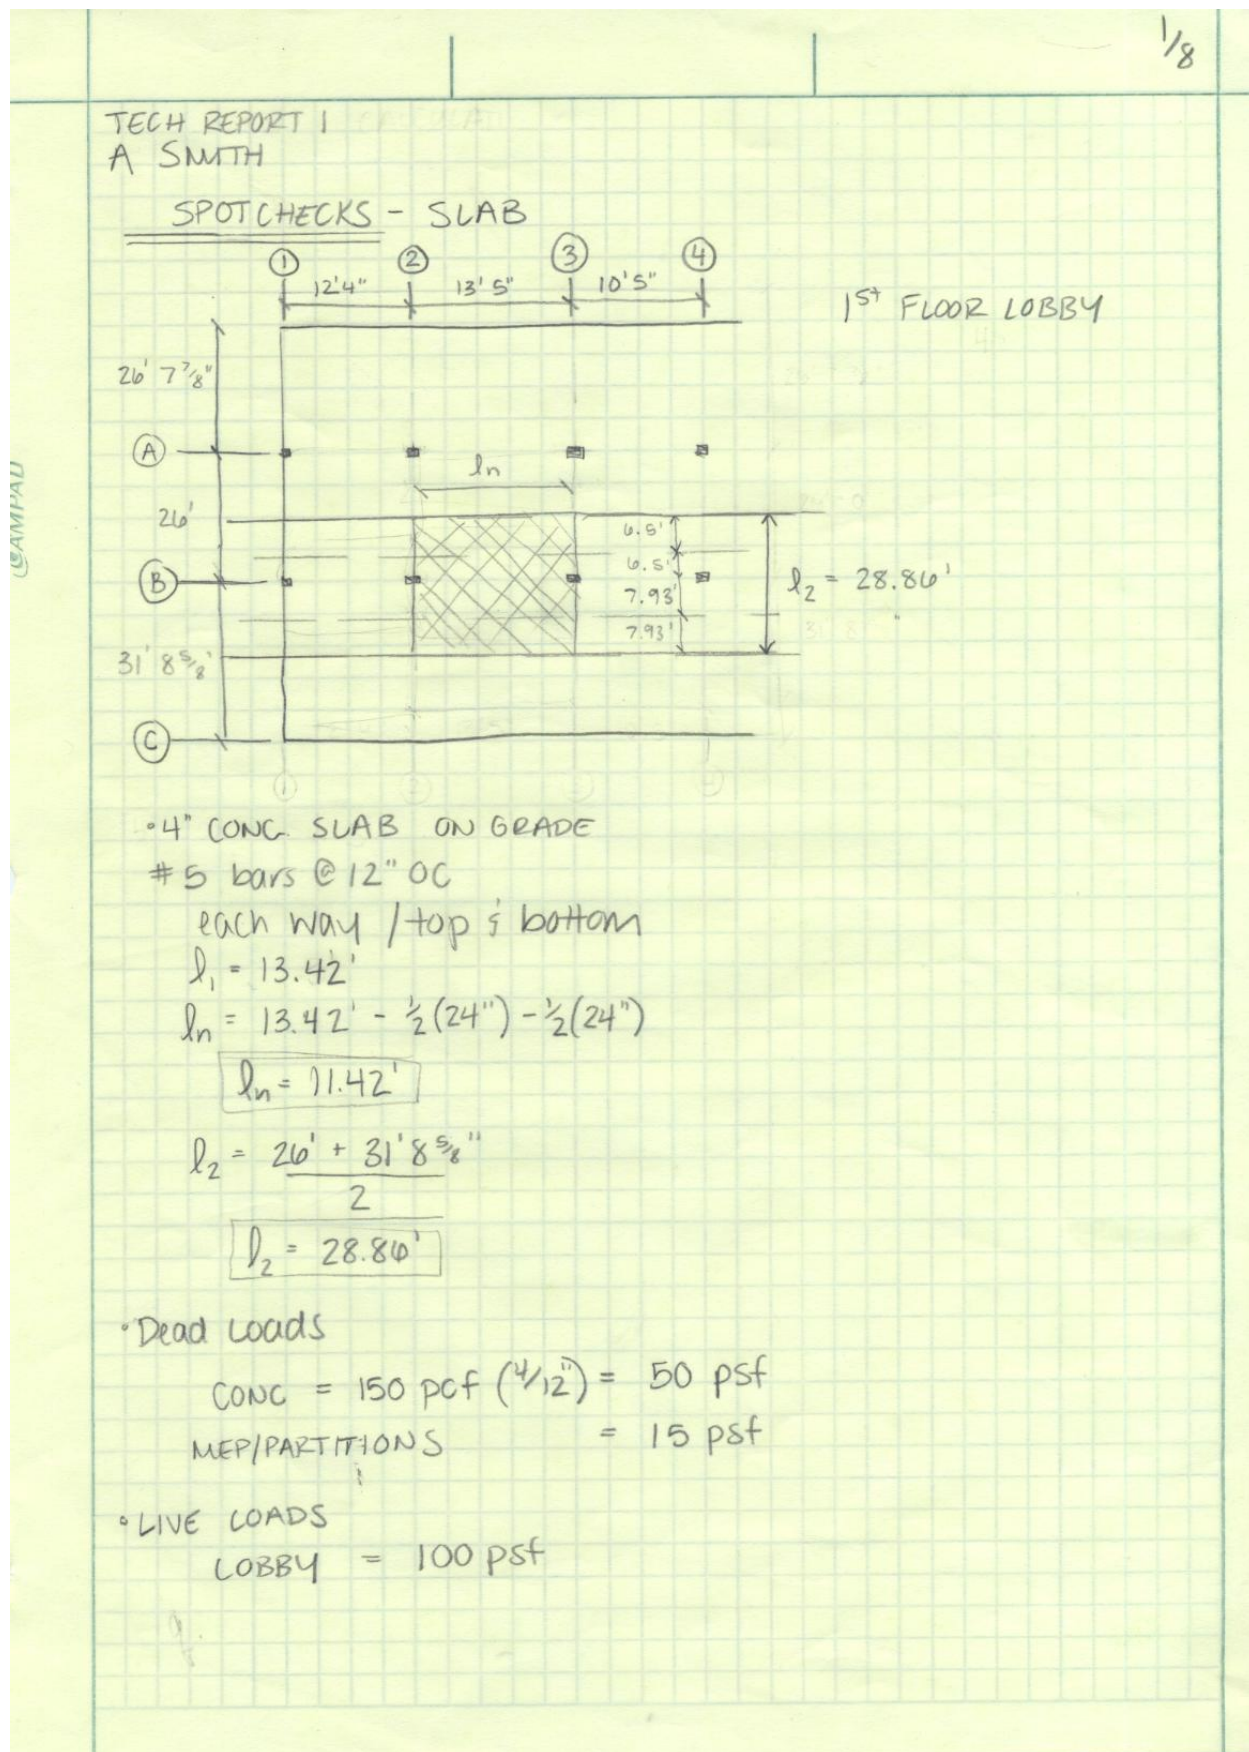 1/8
TECH REPORT 1
A SMITH
SPOTCHECKS - SLAB
① ② ③ ④
12'4" 13'5" 10'5"
1st FLOOR LOBBY
26' 7 7/8"
A
ln
26'
6.5'
6.5'
B
l2 = 28.86'
7.93'
7.93'
31' 8 5/8"
C
@AMPAD
• 4" CONC. SLAB ON GRADE
# 5 bars @ 12" OC
each way / top & bottom
l1 = 13.42'
ln = 13.42' - 1/2(24") - 1/2(24")
ln = 11.42'
l2 = 26' + 31'8 5/8"
2
l2 = 28.86'
• Dead Loads
CONC = 150 pcf (4/12") = 50 psf
MEP/PARTITIONS = 15 psf
• LIVE LOADS
LOBBY = 100 psf